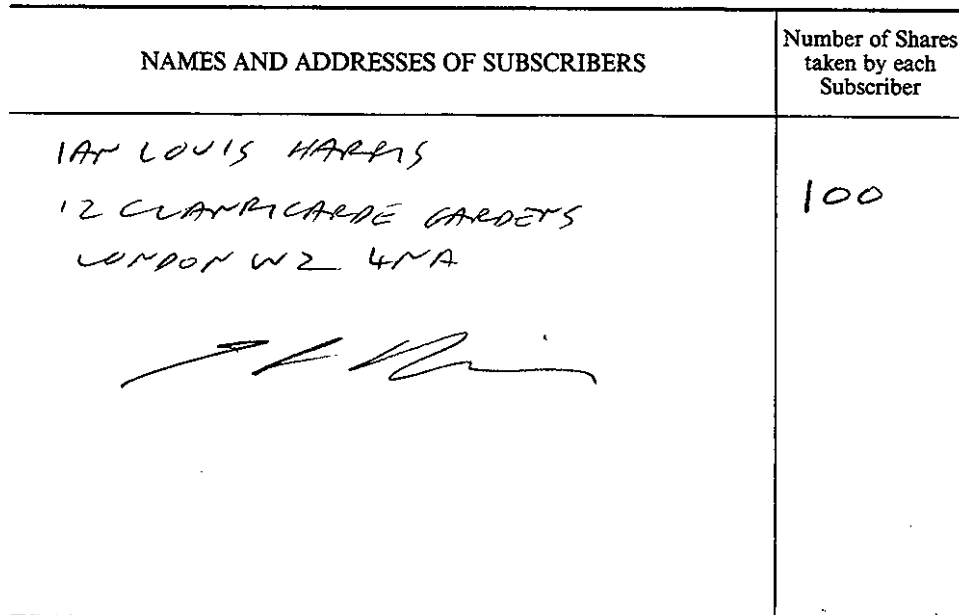 NAMES AND ADDRESSES OF SUBSCRIBERS
Number of Shares
taken by each
Subscriber
IAN LOUIS HARRIS
100
12 CLANRICARDE GARDENS
LONDON W2 4NA